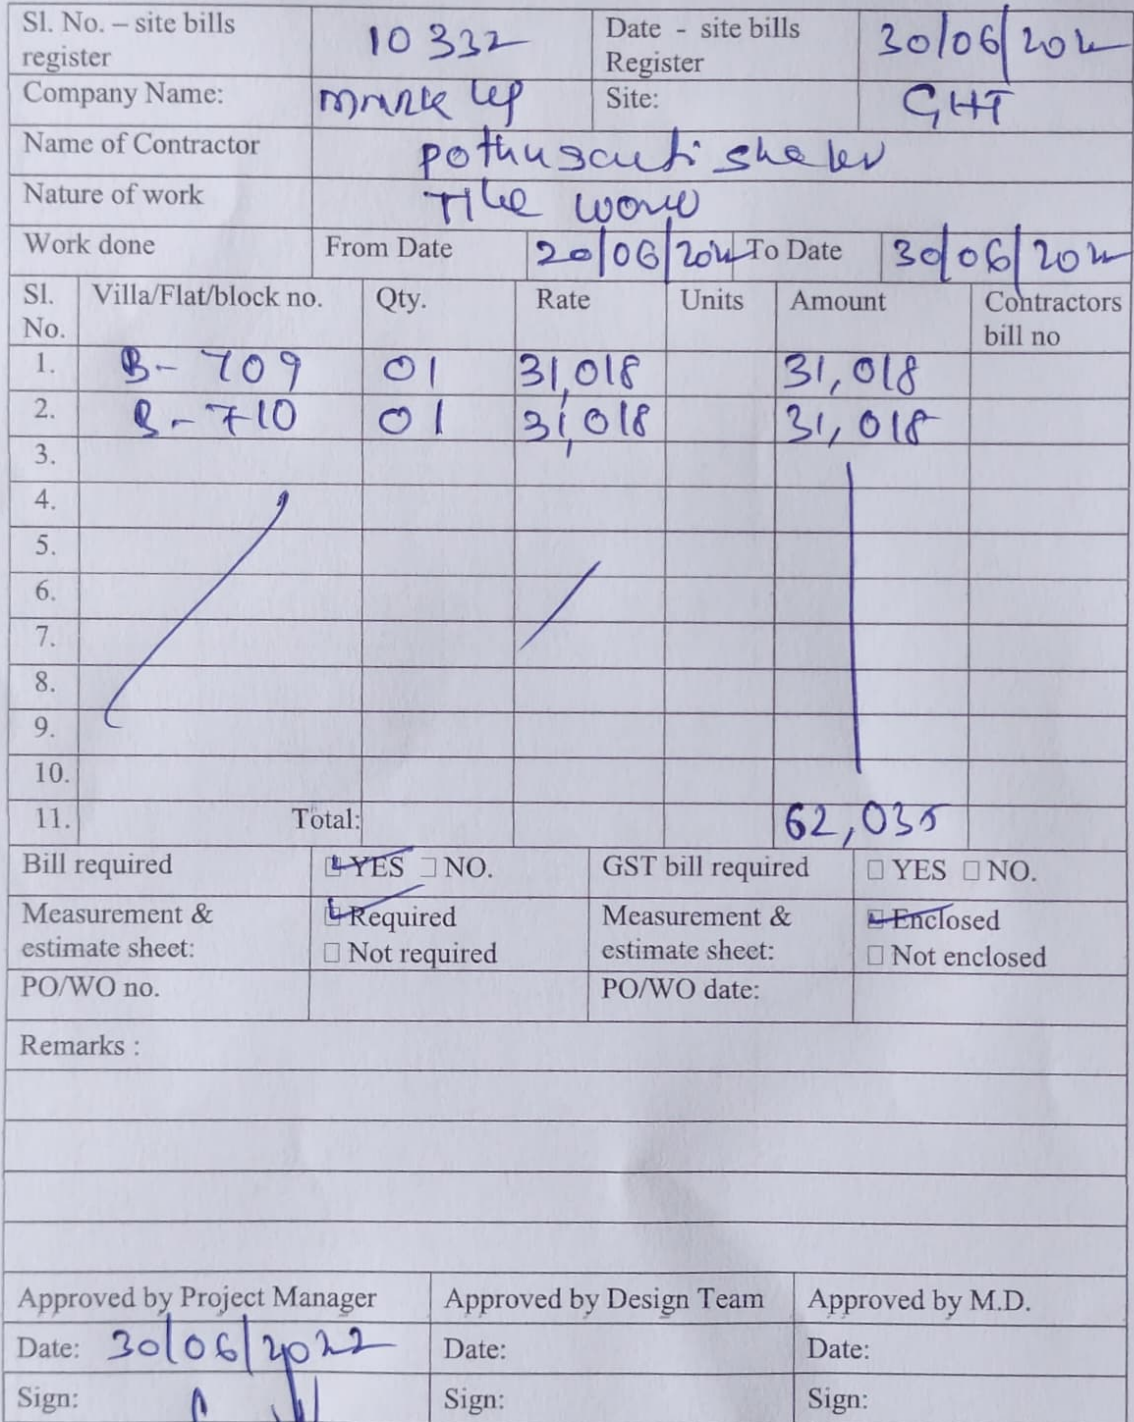 Sl. No. – site bills register 10332 Date - site bills Register 30/06/2022
Company Name: Site: GHT
Name of Contractor
Nature of work Tile work
Work done From Date 20/06/2022 To Date 30/06/2022
Sl. No. Villa/Flat/block no. Qty. Rate Units Amount Contractors bill no
1. B-709 01 31,018 31,018
2. B-710 01 31,018 31,018
3.
4.
5.
6.
7.
8.
9.
10.
11. Total: 62,035
Bill required YES NO. GST bill required YES NO.
Measurement & estimate sheet: Required Measurement & estimate sheet: Enclosed
Not required Not enclosed
PO/WO no. PO/WO date:
Remarks :
Approved by Project Manager Approved by Design Team Approved by M.D.
Date: 30/06/2022 Date: Date:
Sign: Sign: Sign: